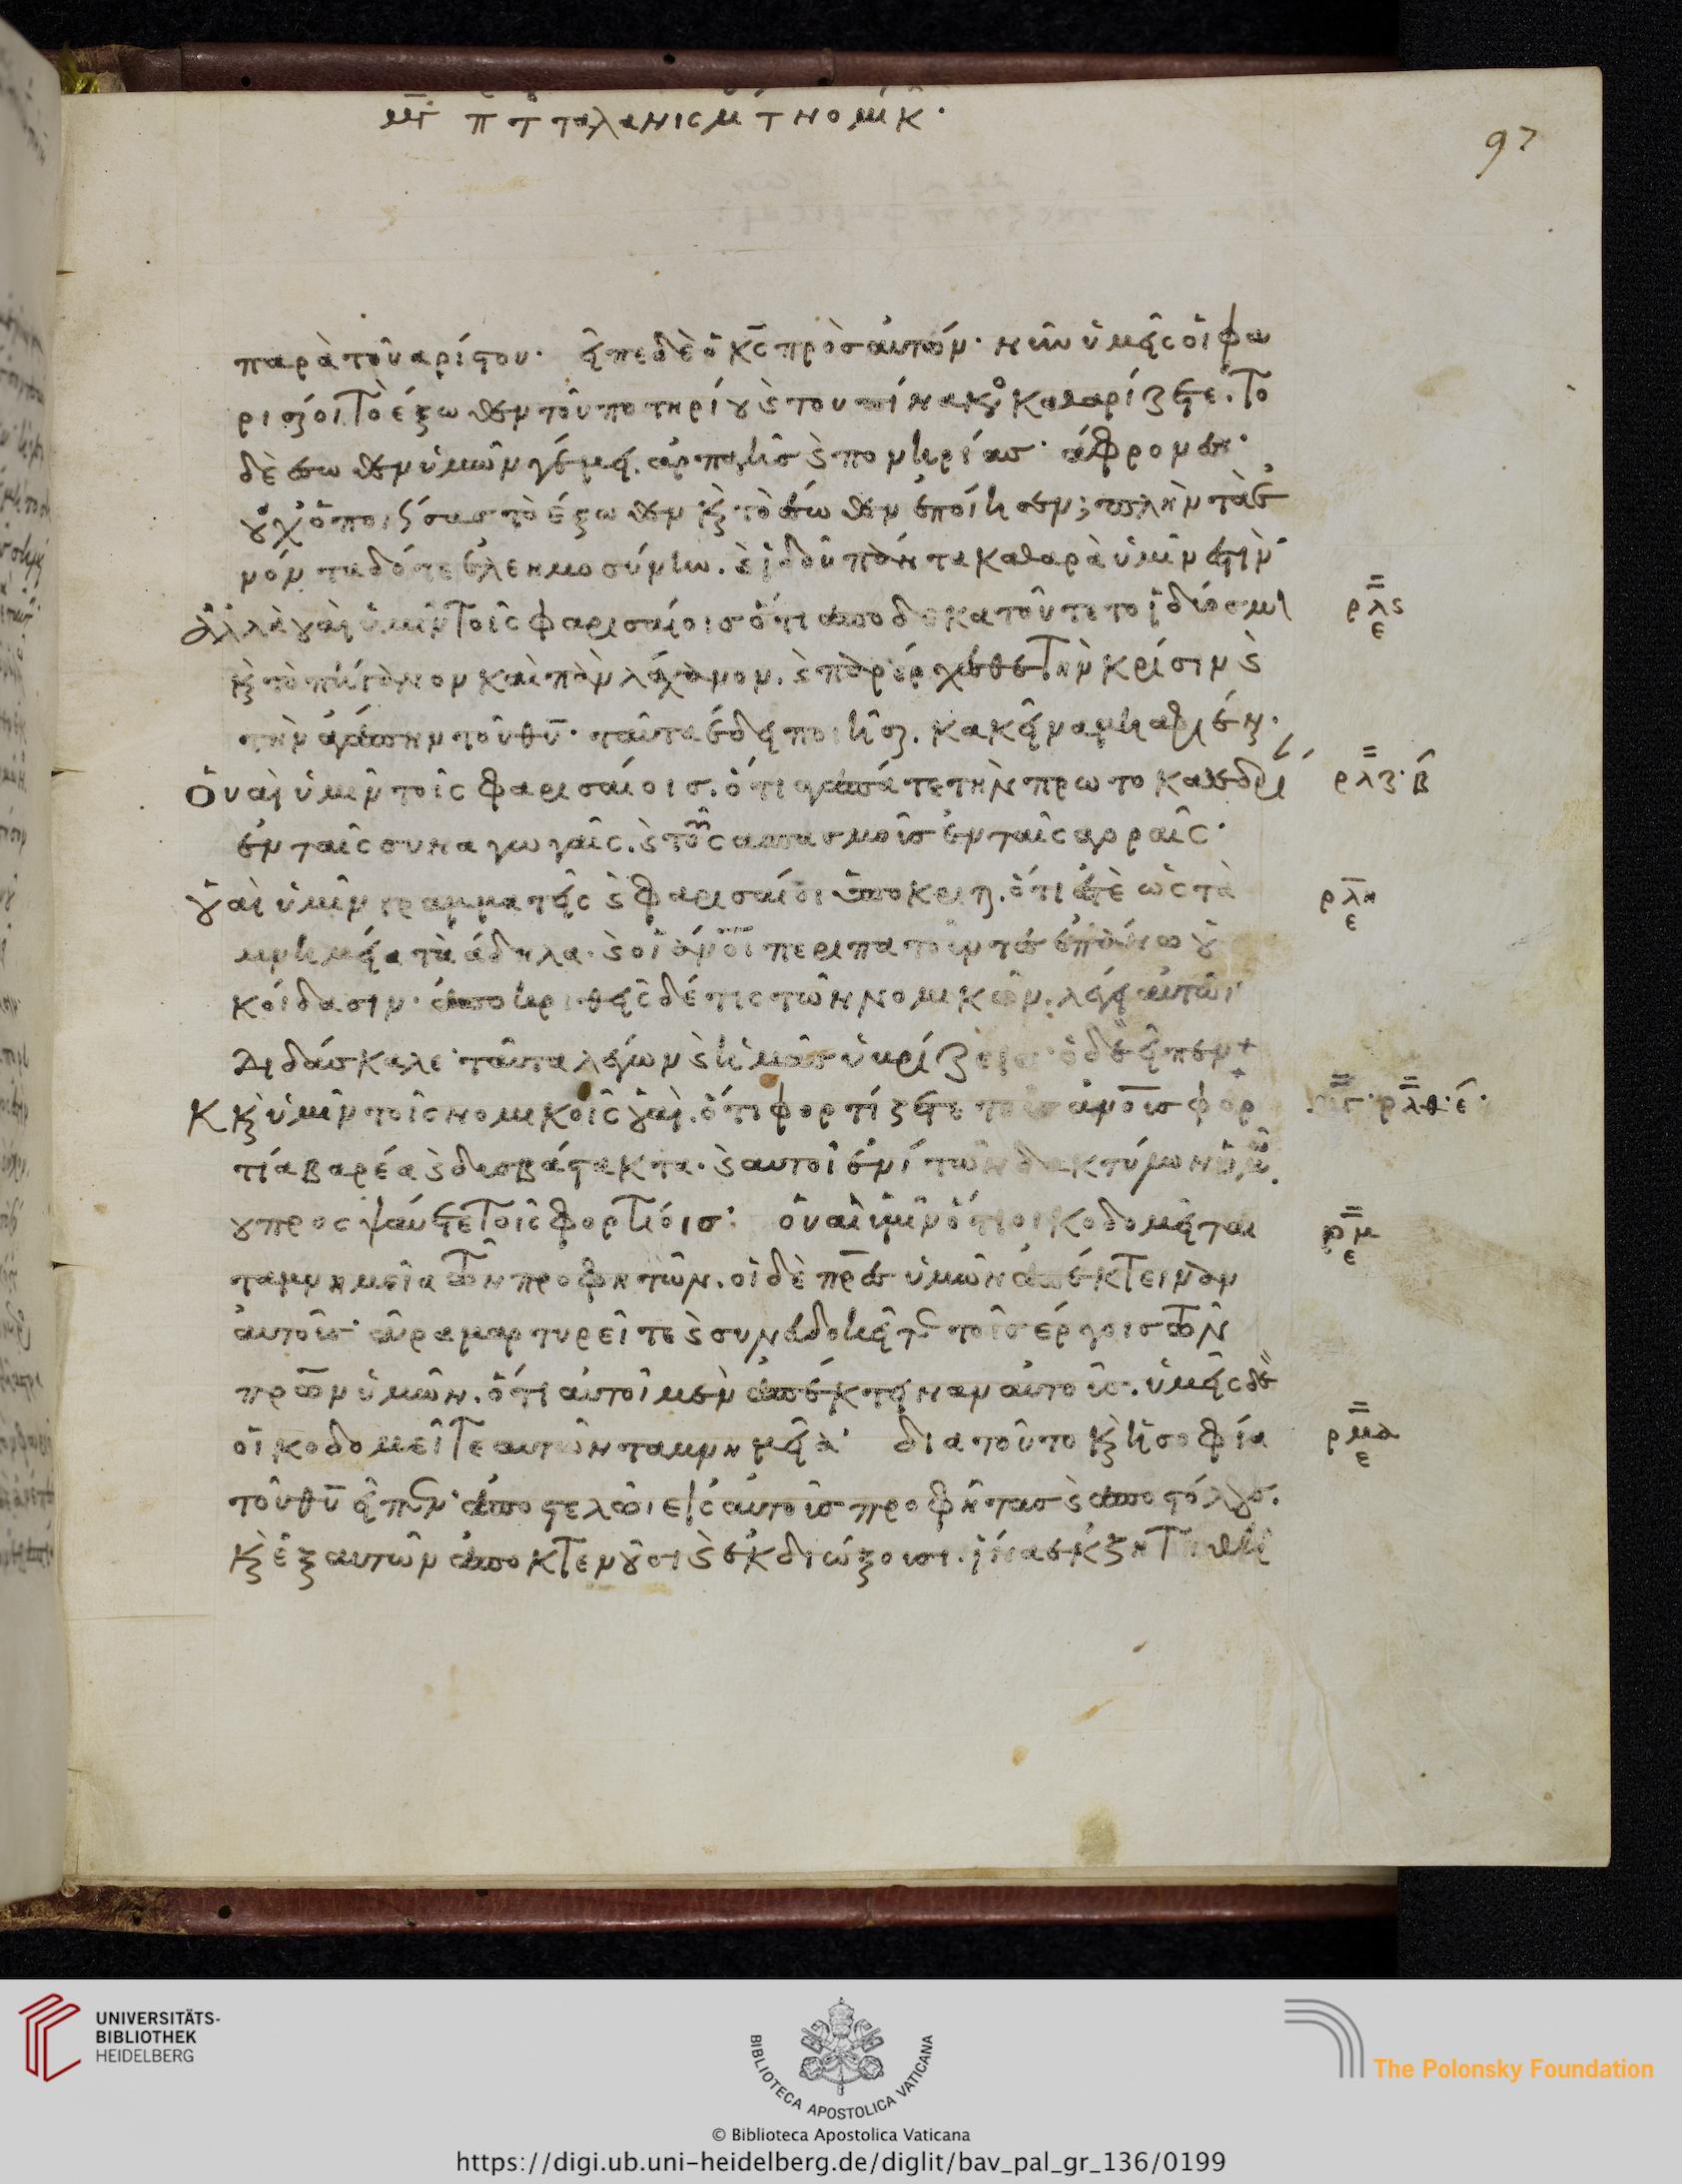 μγ π τ ταλανισμ τ νομικ·
97
παρὰ τοῦ αρίστου· εἶπε δὲ ὁ κ̅ς̅ πρὸσ αυτόν· νῦν ὑμεῖς οἱ φα
ρισαῖοι τὸ έξωθεν τοῦ ποτηρίου καὶ του πίνακος καθαρίζετε. το
δὲ έσωθεν ὑμῶν γέμει. ἁρπαγῆσ καὶ πονηρίασ· άφρονεσ·
οὐχ ὁ ποιήσασ τὸ έξωθεν καὶ τὸ έσωθεν ἐποίησεν; πλὴν τὰ ἐ
νόντα δότε ἐλεημοσύνην. καὶ ϊδοῦ πάντα καθαρὰ ὑμῖν ἐστὶν·
Ἀλλὰ οὐαὶ ὑμῖν τοῖς φαρισαίοισ ὅτι αποδεκατοῦτε το ἡδύοσμ
καὶ τὸ πήγανον και πὰν λάχανον. καὶ παρέρχεσθε τὴν κρίσιν καὶ
τὴν ἀγάπην τοῦ θ̅υ̅· ταῦτα ἔδει ποιῆσαι. κακεῖνα μὴ αφιέναι·
Ὀυαὶ ὑμῖν τοῖς φαρισαίοισ. ὅτι αγαπάτε τὴν πρωτοκαθεδρί
ἐν ταῖς συναγωγαῖς. καὶ τοὺς ασπασμοῖσ ἐν ταῖς αγοραῖς·
Οὐαὶ ὑμῖν γραμματεῖς καὶ φαρισαίοι ὑποκριταὶ. ὅτι ἐστὲ ὡς τὰ
μνημεία τὰ άδηλα· καὶ οἱ ἀν̅ο̅ι̅ περιπατοῦντεσ ἐπάνω οὐ
κ όιδασιν· ἀποκριθεῖς δέ τις τῶν νομικῶν. λέγει αυτῶ·
Διδάσκαλε· ταῦτα λέγων καὶ ἡμᾶσ ὑβρίζεισ· ὁ δὲ εἶπεν·
Κ καὶ ὑμῖν τοῖς νομικοῖς οὐαὶ. ὅτι φορτίζετε τοὺσ ἀν̅ο̅ι̅σ φορ
τία βαρέα καὶ δυσβάστακτα· καὶ αυτοὶ ἑνὶ τῶν δακτύλων ὑμῶν
ου προσψαύετε τοῖς φορτίοισ· ὀυαὶ ὑμῖν ὅτι οικοδομεῖται
τα μνημεῖα τῶν προφητῶν. οἱ δὲ π̅ρ̅εσ ὑμῶν ἀπέκτειναν
ἀυτοὺσ· ἄρα μαρτυρεῖτε καὶ συνευδοκεῖτε τοῖσ έργοισ τῶν
π̅ρ̅ων ὑμῶν. ὅτι αυτοὶ μεν ἀπέκτειναν αυτοὺσ. ὑμεῖς δὲ
οἰκοδομεῖτε αυτῶν τα μνημεῖα· δια τοῦτο καὶ ἡ σοφία
τοῦ θ̅υ̅ εἶπεν· ἀποστελῶ εἰς αυτοὺσ προφήτασ καὶ αποστόλουσ.
καὶ ἐξ αυτῶν ἀποκτενοῦσι καὶ ἐκδιώξουσι. ἵνα εκζητηθῆ
ρλϛ
ε
ρλζ· β
ρλη
ε
μγ· ρλθ· ε·
ρμ
ε
ρμα
ε
UNIVERSITÄTS-
BIBLIOTHEK
HEIDELBERG
BIBLIOTECA APOSTOLICA VATICANA
The Polonsky Foundation
© Biblioteca Apostolica Vaticana
https://digi.ub.uni-heidelberg.de/diglit/bav_pal_gr_136/0199